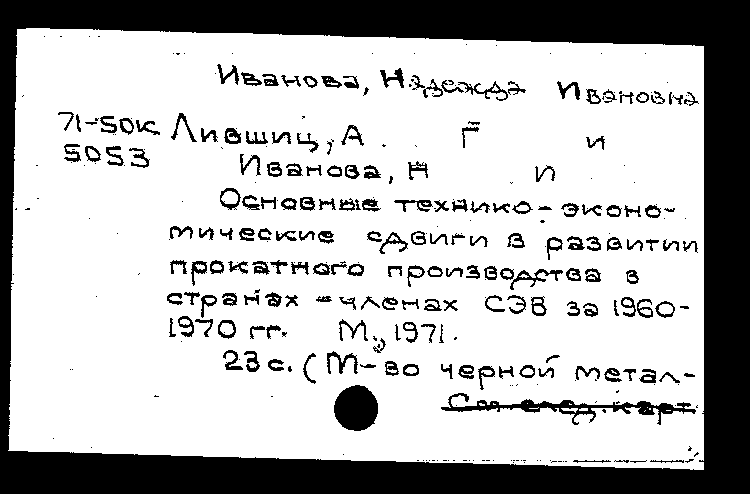 Иванова, Надежда Ивановна
71-50к Лившиц, А. Г и
5053 Иванова, Н И
Основные технико-эконо-
мические сдвиги в развитии
прокатного производства в
странах-членах СЭВ за 1960-
1970 гг. М., 1971.
23 с. (М-во черной метал-
См след. карт